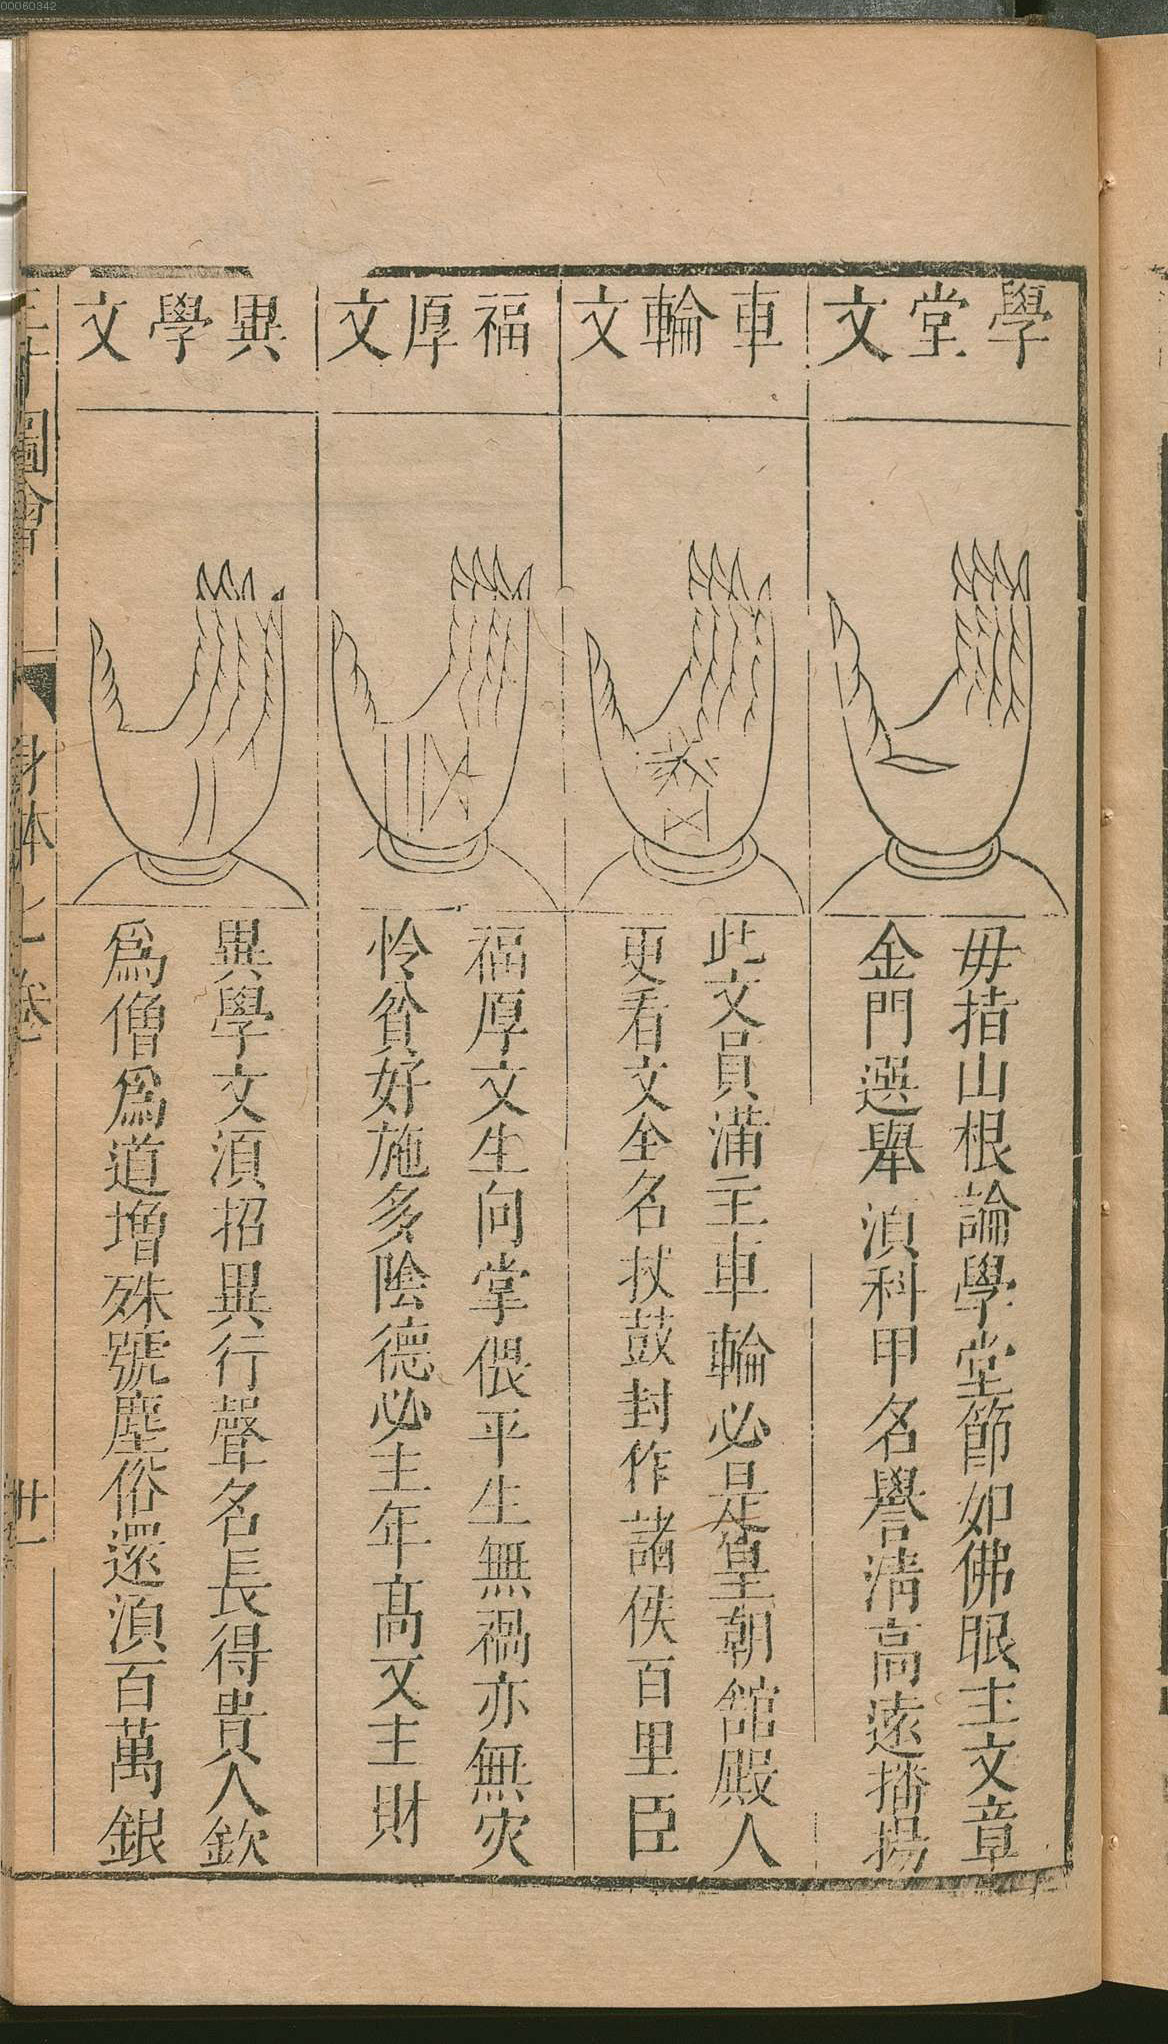 00060342
學堂文
毋指山根論學堂節如佛眼主文章
金門選舉湏科甲名譽清高遠播揚
車輪文
此文員滿主車輪必是皇朝館殿人
更看文全名扙鼓封作諸侯百里臣
福厚文
福厚文生向掌偎平生無禍亦無灾
怜貧好施多陰德必主年高又主財
異學文
異學文湏招異行聲名長得貴人欽
為僧為道增殊號塵俗還湏百萬銀
圖會
身体
卷
卅一